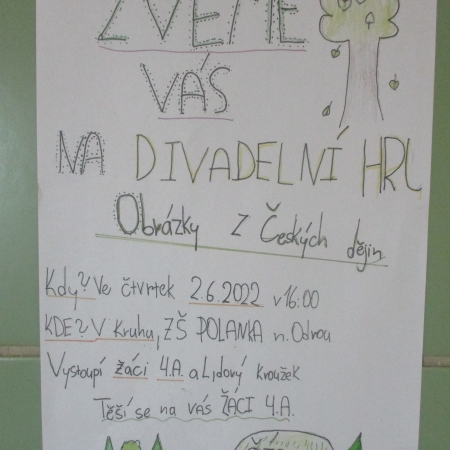 ZVEME
VÁS
NA DIVADELNÍ HRU
Obrázky z Českých dějin
Kdy? Ve čtvrtek 2.6.2022 v 16:00
KDE? V Kruhu, ZŠ POLANKA n. Odrou
Vystoupí žáci 4.A a Lidový kroužek
Těší se na vás ŽÁCI 4.A.